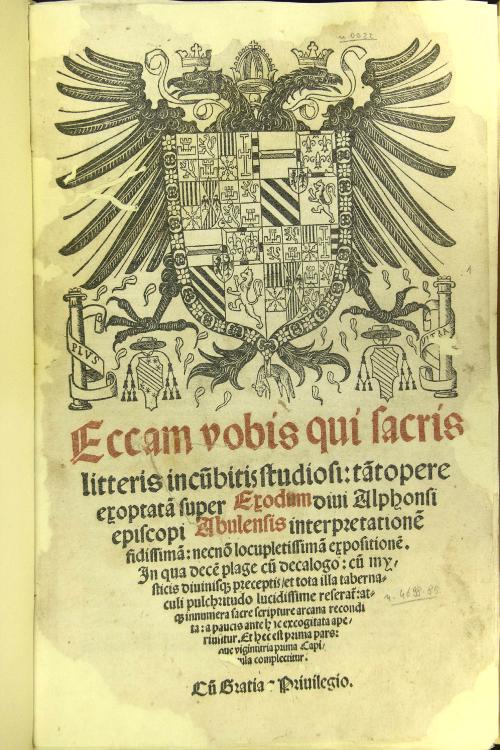 n 0022
PLVS
Eccam vobis qui sacris
litteris incūbitis studiosi: tātopere
exoptatā super Exodum diui Alphonsi
episcopi Abulensis interpretationē
fidissimā: necnō locupletissimā expositionē.
In qua decē plage cū decalogo: cū my⸗
sticis diuinisq; preceptis/et tota illa taberna⸗
culi pulchritudo lucidissime reserat̄: at⸗
q; innumera sacre scripture arcana recondi
ta: a paucis ante hac excogitata ape⸗
riuntur. Et hec est prima pars:
que vigintitria prima Capi⸗
tula complectitur.
Cū Gratia ⁊ Priuilegio.